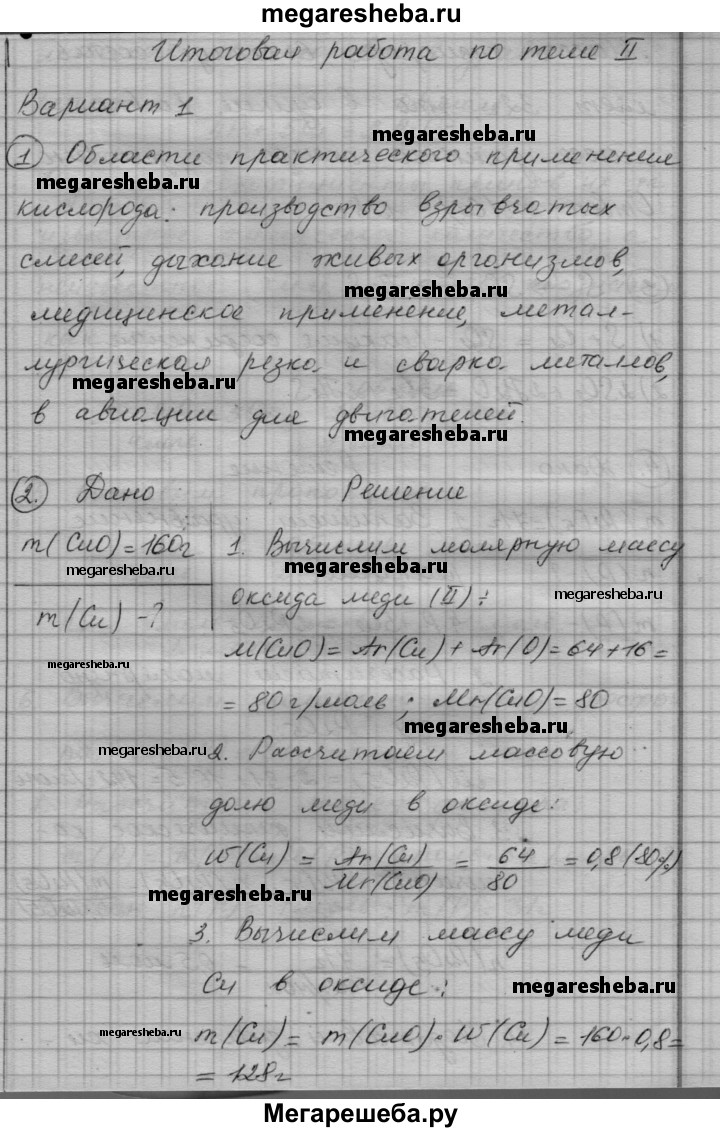 megaresheba.ru
Итоговая работа по теме II
Вариант 1
megaresheba.ru
1 Области практического применения
megaresheba.ru
кислорода: производство взрывчатых
смесей, дыхание живых организмов,
megaresheba.ru
медицинское применение, метал-
лургическая резка и сварка металлов,
megaresheba.ru
в авиации для двигателей.
megaresheba.ru
2. Дано Решение
m(CuO)=160г 1. Вычислим молярную массу
megaresheba.ru megaresheba.ru
m(Cu) -? оксида меди (II):
megaresheba.ru
M(CuO)= Ar(Cu) + Ar(O)=64+16=
megaresheba.ru
= 80 г/моль ; Mr(CuO)=80
megaresheba.ru
megaresheba.ru 2. Рассчитаем массовую
долю меди в оксиде:
W(Cu) = Ar(Cu)/Mr(CuO) = 64/80 = 0,8 (80%)
megaresheba.ru
3. Вычислим массу меди
Cu в оксиде:
megaresheba.ru
megaresheba.ru m(Cu) = m(CuO)·W(Cu) = 160·0,8=
= 128г
Мегарешеба.ру